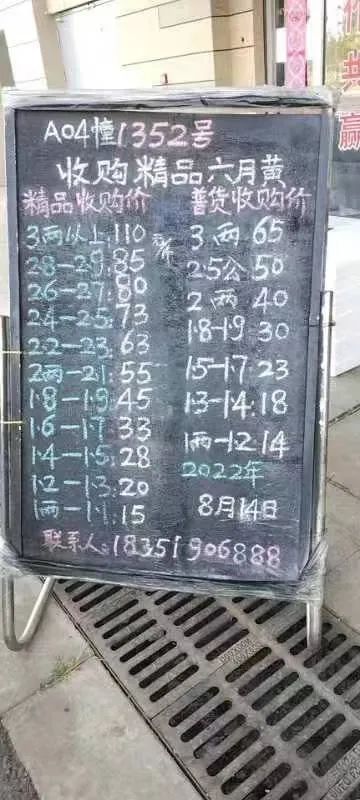 A04幢1352号
收购精品六月黄
精品收购价
3两以上:110元/斤
28-29:85
26-27:80
24-25:73
22-23:63
2两-21:55
18-19:45
16-17:33
14-15:28
12-13:20
1两-11:15
普货收购价
3两65
25公50
2两40
18-19 30
15-17:23
13-14:18
1两-12 14
2022年
8月14日
联系人:18351906888
共
赢